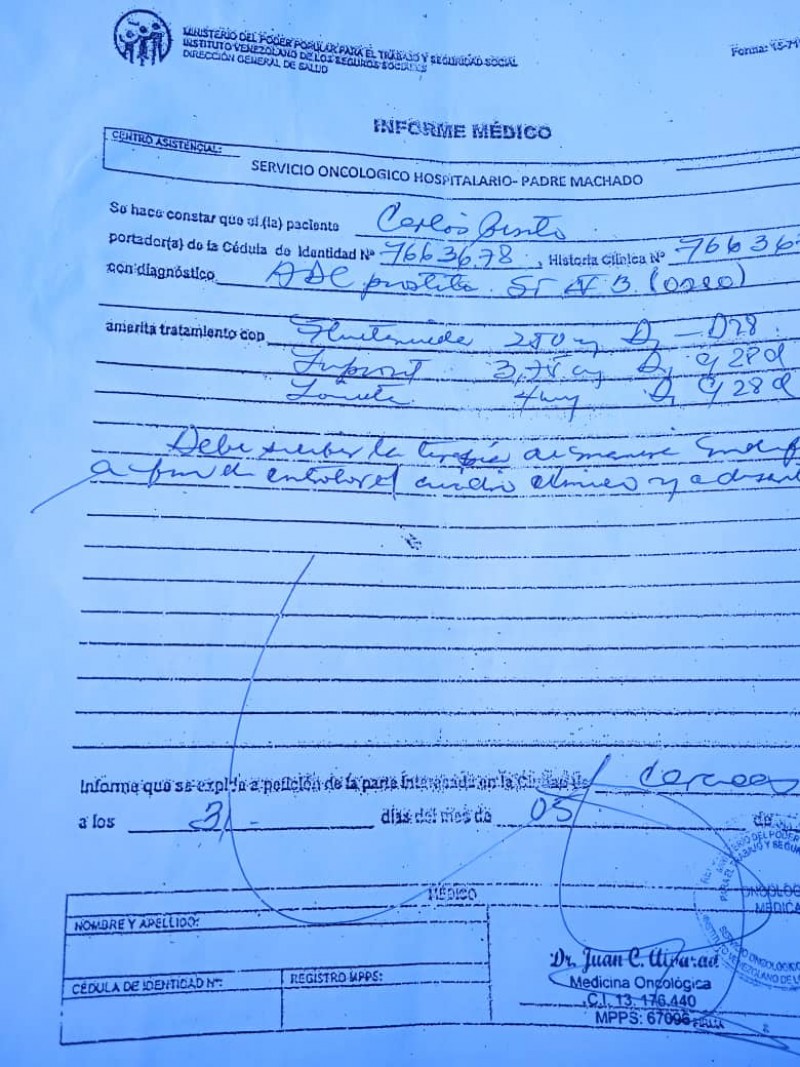 MINISTERIO DEL PODER POPULAR PARA EL TRABAJO Y SEGURIDAD SOCIAL
INSTITUTO VENEZOLANO DE LOS SEGUROS SOCIALES
DIRECCIÓN GENERAL DE SALUD
Forma: 15-7
INFORME MÉDICO
CENTRO ASISTENCIAL:
SERVICIO ONCOLOGICO HOSPITALARIO- PADRE MACHADO
Se hace constar que el (la) paciente Carlos
portador(a) de la Cédula de Identidad Nº 7663678, Historia Clínica Nº 76636
con diagnóstico ADC próstata ST IV B (oseo)
amerita tratamiento con 250 mg D1 - D28.
3,75 mg D1 c/ 28 d
4 mg D1 c/ 28 d
Debe recibir la terapia de manera
a fin de controlar el cuadro clínico y
Informe que se expide a petición de la parte interesada en la Ciudad de Caracas
a los 3 días del mes de 05 de
MÉDICO
NOMBRE Y APELLIDO:
CÉDULA DE IDENTIDAD Nº:
REGISTRO MPPS:
Dr. Juan C. Alvarad
Medicina Oncológica
C.I. 13.176.440
MPPS: 67096